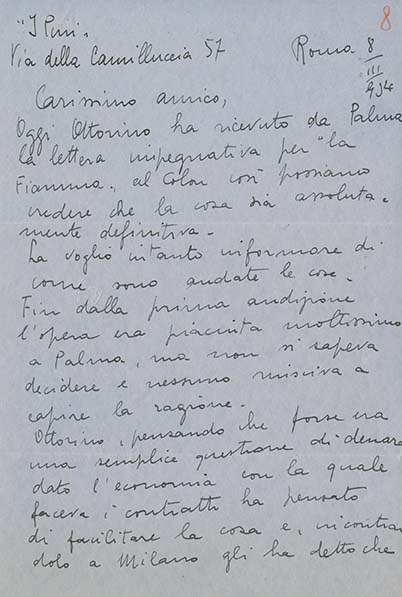 8
"I Pini"
Via della Camilluccia 57 Roma 8
III
934
Carissimo amico,
Oggi Ottorino ha ricevuto da Palma
la lettera impegnativa per "la
Fiamma" al Colon così possiamo
credere che la cosa sia assoluta-
mente definitiva.
La voglio intanto informare di
come sono andate le cose.
Fin dalla prima audizione
l'opera era piaciuta moltissimo
a Palma, ma non si sapeva
decidere e nessuno riusciva a
capire la ragione.
Ottorino, pensando che forse era
una semplice questione di denaro
dato l'economia con la quale
faceva i contratti ha pensato
di facilitare la cosa e, incontran
dolo a Milano gli ha detto che